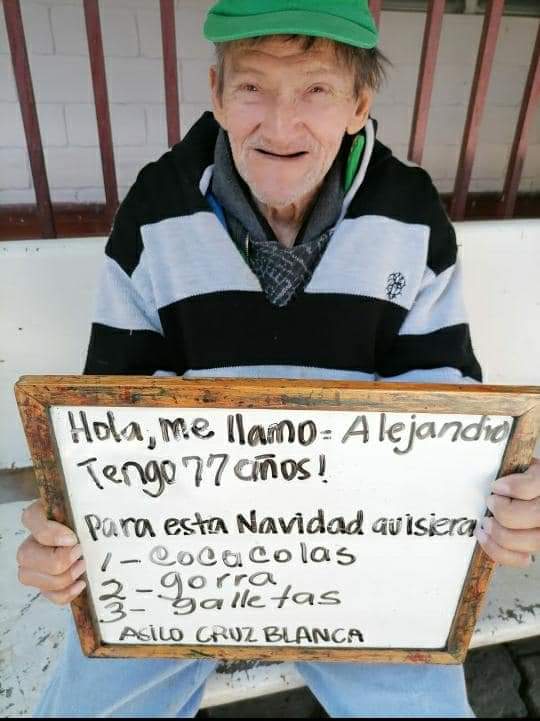 Hola, me llamo = Alejandro
Tengo 77 años!
Para esta Navidad quisiera
1 - Coca colas
2 - gorra
3 - galletas
ASILO CRUZ BLANCA